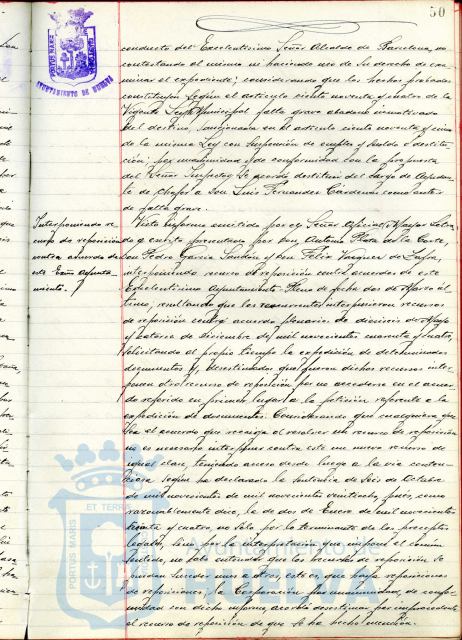 50
PORTUS MARIS
AYUNTAMIENTO DE HUELVA
conducto del Excelentísimo Señor Alcalde de Barcelona, no
contestando al mismo ni haciendo uso de su derecho de exa-
minar el expediente; considerando que los hechos probados
constituyen según el artículo ciento noventa y cuatro de la
Vigente Ley Municipal falta grave abandono inmotivado
del destino, sancionada en el artículo ciento noventa y cinco
de la misma Ley con suspensión de empleo y sueldo o destitu-
ción; por unanimidad y de conformidad con la propuesta
del Señor Inspector se acordó destituir del cargo de
de a Don Luis Fernández Cárdenas como autor
de falta grave.
Interponiendo re-
curso de reposición
contra acuerdo de
este Excmo. Ayunta-
miento.
Visto informe emitido por el Señor Oficial Mayor Letra-
do a escrito presentado por Don Antonio Plata de la Corte,
Don Pedro García y Don Félix Vázquez de Zafra,
interponiendo recurso de reposición contra acuerdos de este
Excelentísimo Ayuntamiento Pleno de fecha dos de Marzo úl-
timo, resultando que los recurrentes interpusieron recursos
de reposición contra acuerdos plenarios de dieciseis de Mayo
y catorce de Diciembre de mil novecientos cuarenta y cuatro,
solicitando al propio tiempo la expedición de determinados
documentos y, desestimados que fueron dichos recursos inter-
ponen otro recurso de reposición por no accederse en el acuer-
do referido en primer lugar a la petición referente a la
expedición de documentos. Considerando que cualquiera que
sea el acuerdo que recaiga al resolver un recurso de reposición
no es necesario interponer contra este un nuevo recurso de
igual clase, teniendo acceso desde luego a la vía conten-
ciosa según ha declarado la Sentencia de Seis de Octubre
de mil novecientos de mil novecientos veintiocho, pues, como
razonablemente dice, la de dos de Enero de mil novecientos
treinta y cuatro, no sólo por lo terminante de los preceptos
legales, sino por la interpretación que impone el común
sentido, no cabe entender que los recursos de reposición se
puedan suceder unos a otros, esto es, que haya reposiciones
de reposiciones; la Corporación por unanimidad, de confor-
midad con dicho informe, acordó desestimar por improcedente
el recurso de reposición de que se ha hecho mención.
ET TERR
PORTUS MARIS
Ayuntamiento de